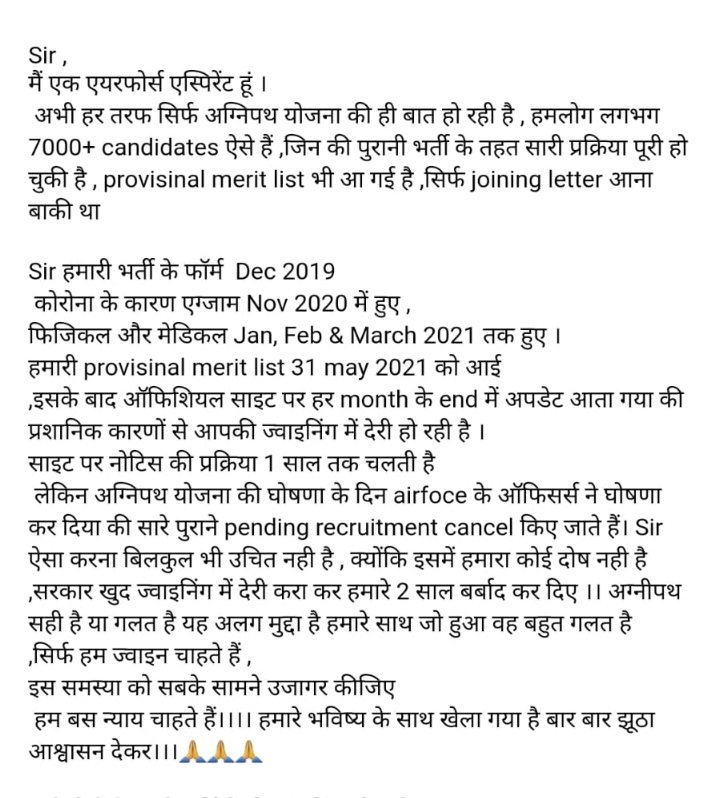 Sir ,
मैं एक एयरफोर्स एस्पिरेंट हूं ।
अभी हर तरफ सिर्फ अग्निपथ योजना की ही बात हो रही है , हमलोग लगभग
7000+ candidates ऐसे हैं ,जिन की पुरानी भर्ती के तहत सारी प्रक्रिया पूरी हो
चुकी है , provisinal merit list भी आ गई है ,सिर्फ joining letter आना
बाकी था
Sir हमारी भर्ती के फॉर्म Dec 2019
कोरोना के कारण एग्जाम Nov 2020 में हुए ,
फिजिकल और मेडिकल Jan, Feb & March 2021 तक हुए ।
हमारी provisinal merit list 31 may 2021 को आई
,इसके बाद ऑफिशियल साइट पर हर month के end में अपडेट आता गया की
प्रशानिक कारणों से आपकी ज्वाइनिंग में देरी हो रही है ।
साइट पर नोटिस की प्रक्रिया 1 साल तक चलती है
लेकिन अग्निपथ योजना की घोषणा के दिन airfoce के ऑफिसर्स ने घोषणा
कर दिया की सारे पुराने pending recruitment cancel किए जाते हैं। Sir
ऐसा करना बिलकुल भी उचित नही है , क्योंकि इसमें हमारा कोई दोष नही है
,सरकार खुद ज्वाइनिंग में देरी करा कर हमारे 2 साल बर्बाद कर दिए ।। अग्नीपथ
सही है या गलत है यह अलग मुद्दा है हमारे साथ जो हुआ वह बहुत गलत है
,सिर्फ हम ज्वाइन चाहते हैं ,
इस समस्या को सबके सामने उजागर कीजिए
हम बस न्याय चाहते हैं।।।। हमारे भविष्य के साथ खेला गया है बार बार झूठा
आश्वासन देकर।।।🙏🙏🙏